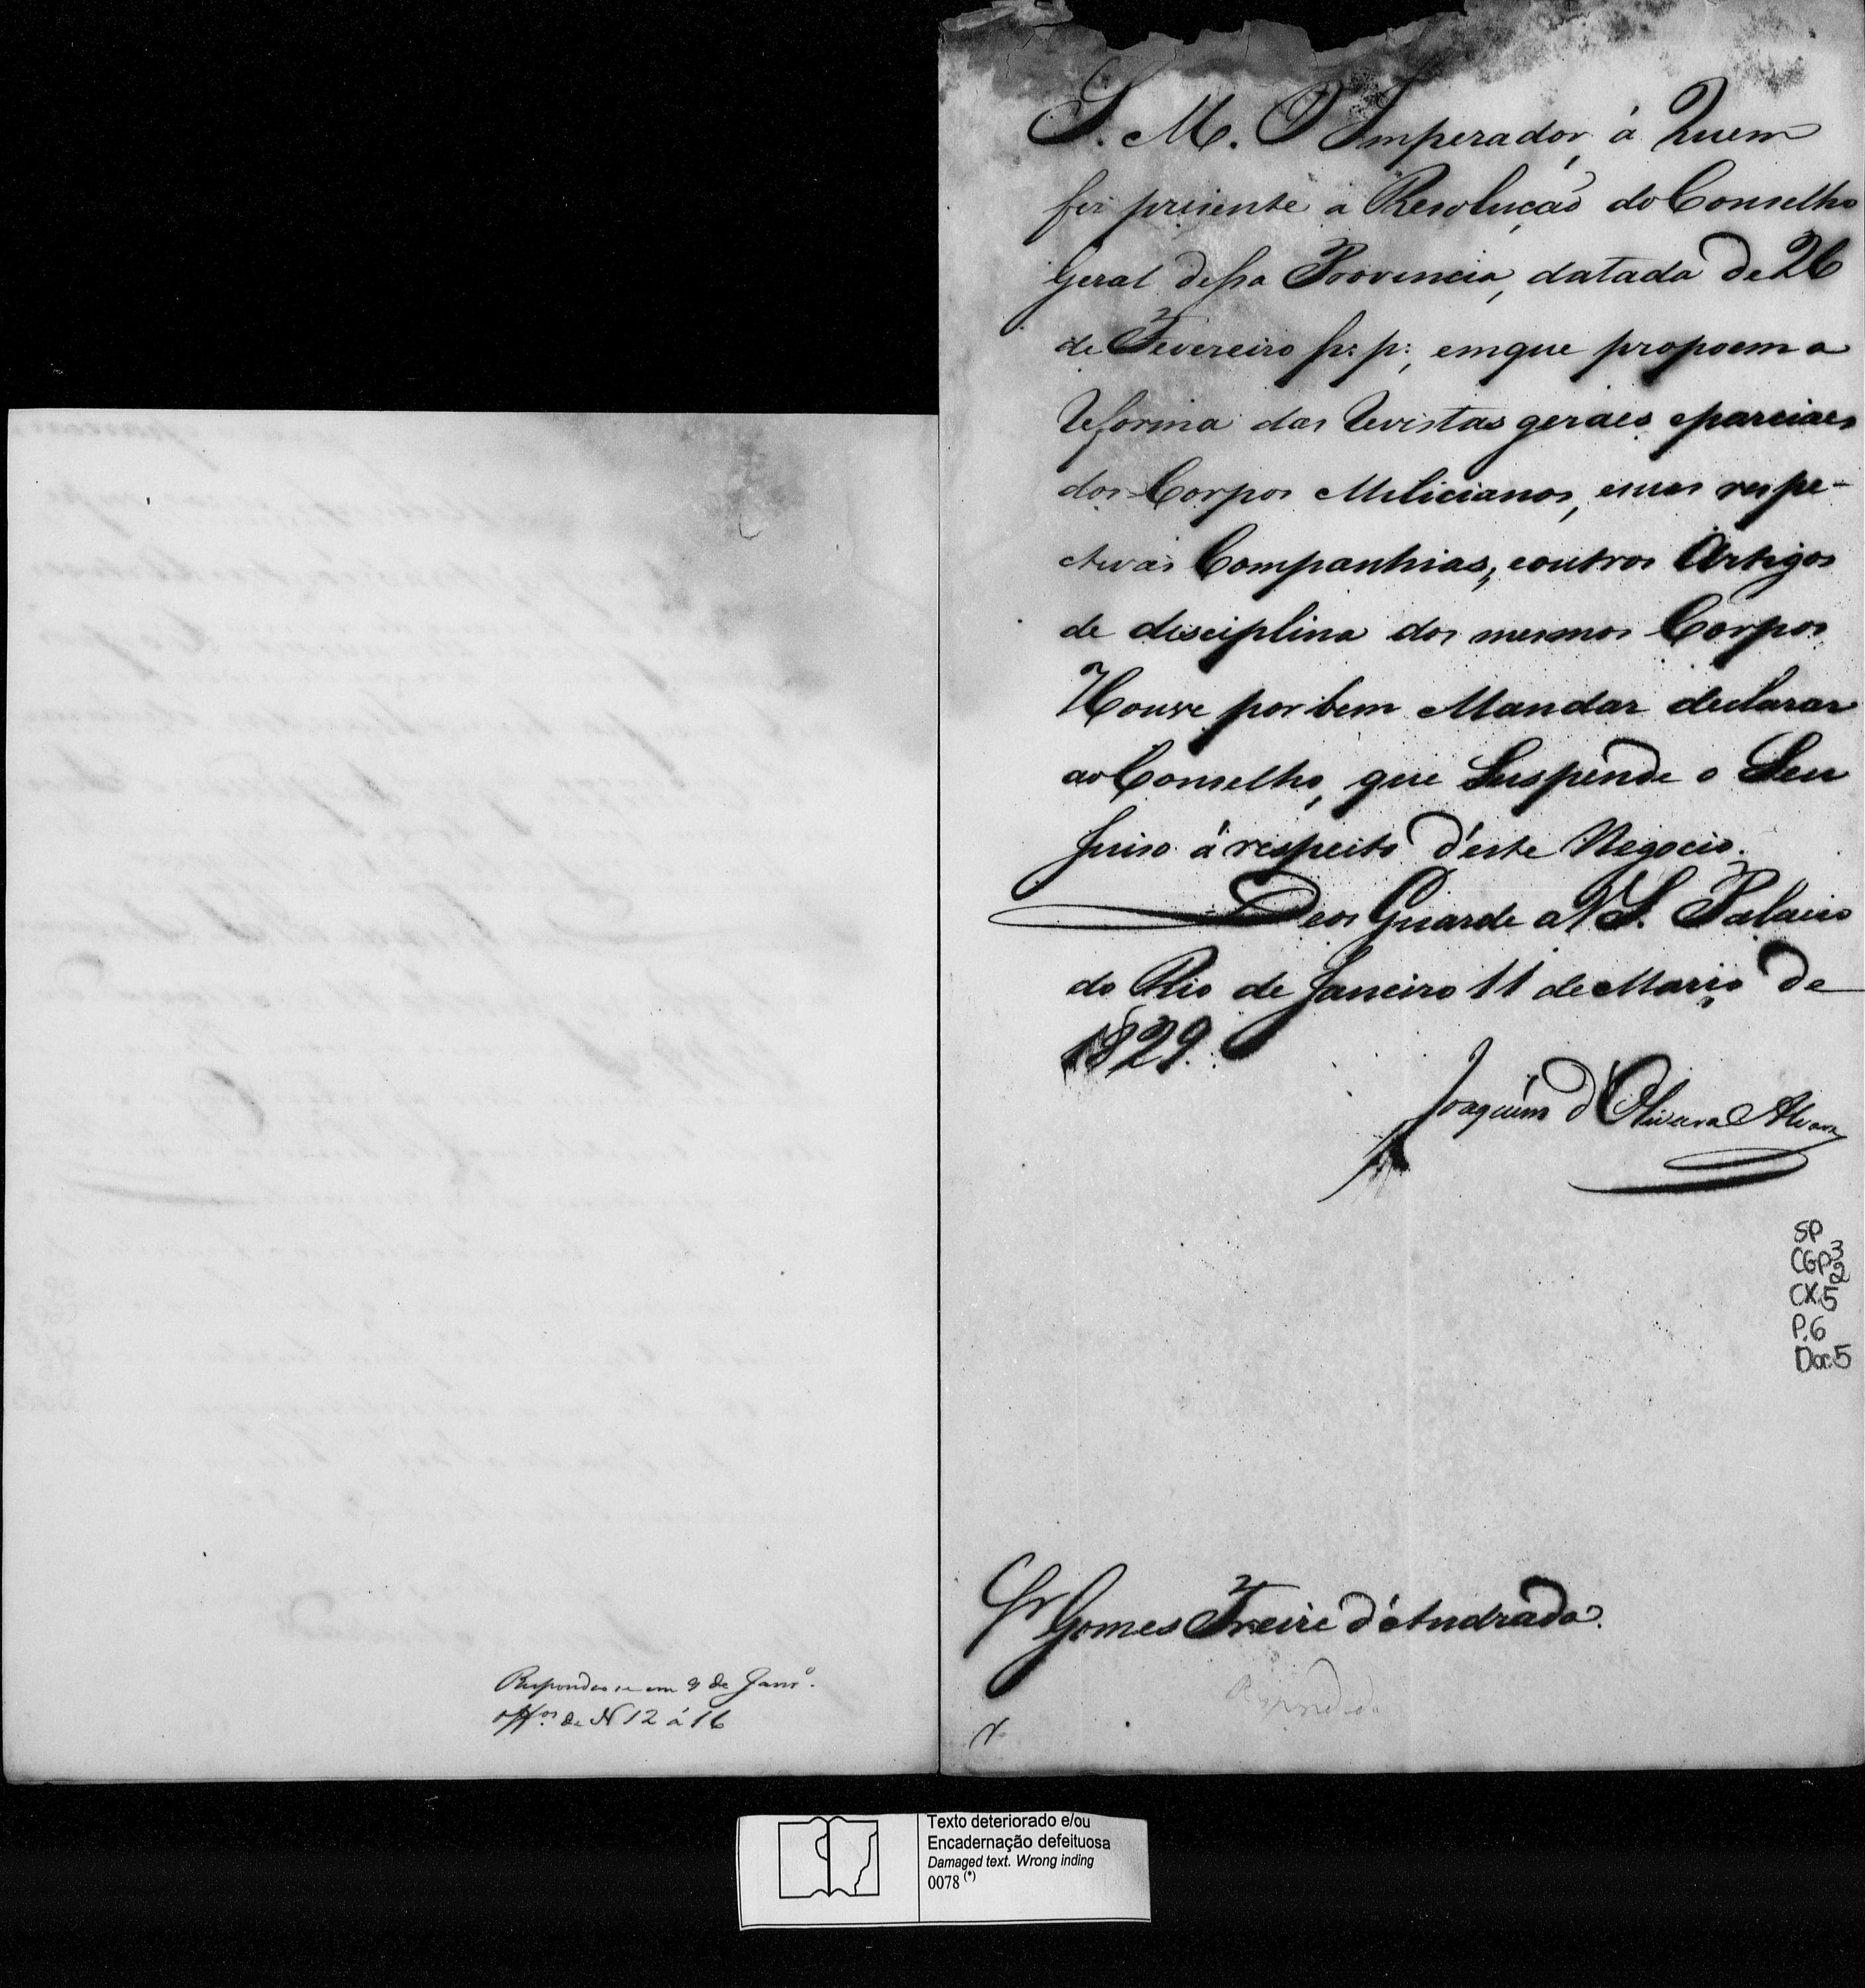 Respondeo se em 9 de Janrº.
Offos. de N 12 á 16
S. M. O Imperador, á Quem
foi presente a Resolução do Conselho
Geral dessa Provincia, datada de 26
de Fevereiro p: p:, emque propoem a
Reforma das Revistas geraes eparciaes
dos Corpos Milicianos, esuas respe-
ctivas Companhias, eoutros Artigos
de disciplina dos mesmos Corpos
Houve por bem Mandar declarar
ao Conselho, que Suspende o Seu
Juiso á respeito d'éste Negocio.
Deos Guarde a V S. Palacio
do Rio de Janeiro 11 de Março de
1829.
Joaquim d'Oliveira Alvares
SP
CGP3
2
CX.5
P.6
Doc.5
Sr Gomes Freire d'Andrada.
Respondido
Texto deteriorado e/ou
Encadernação defeituosa
Damaged text. Wrong inding
0078 (*)